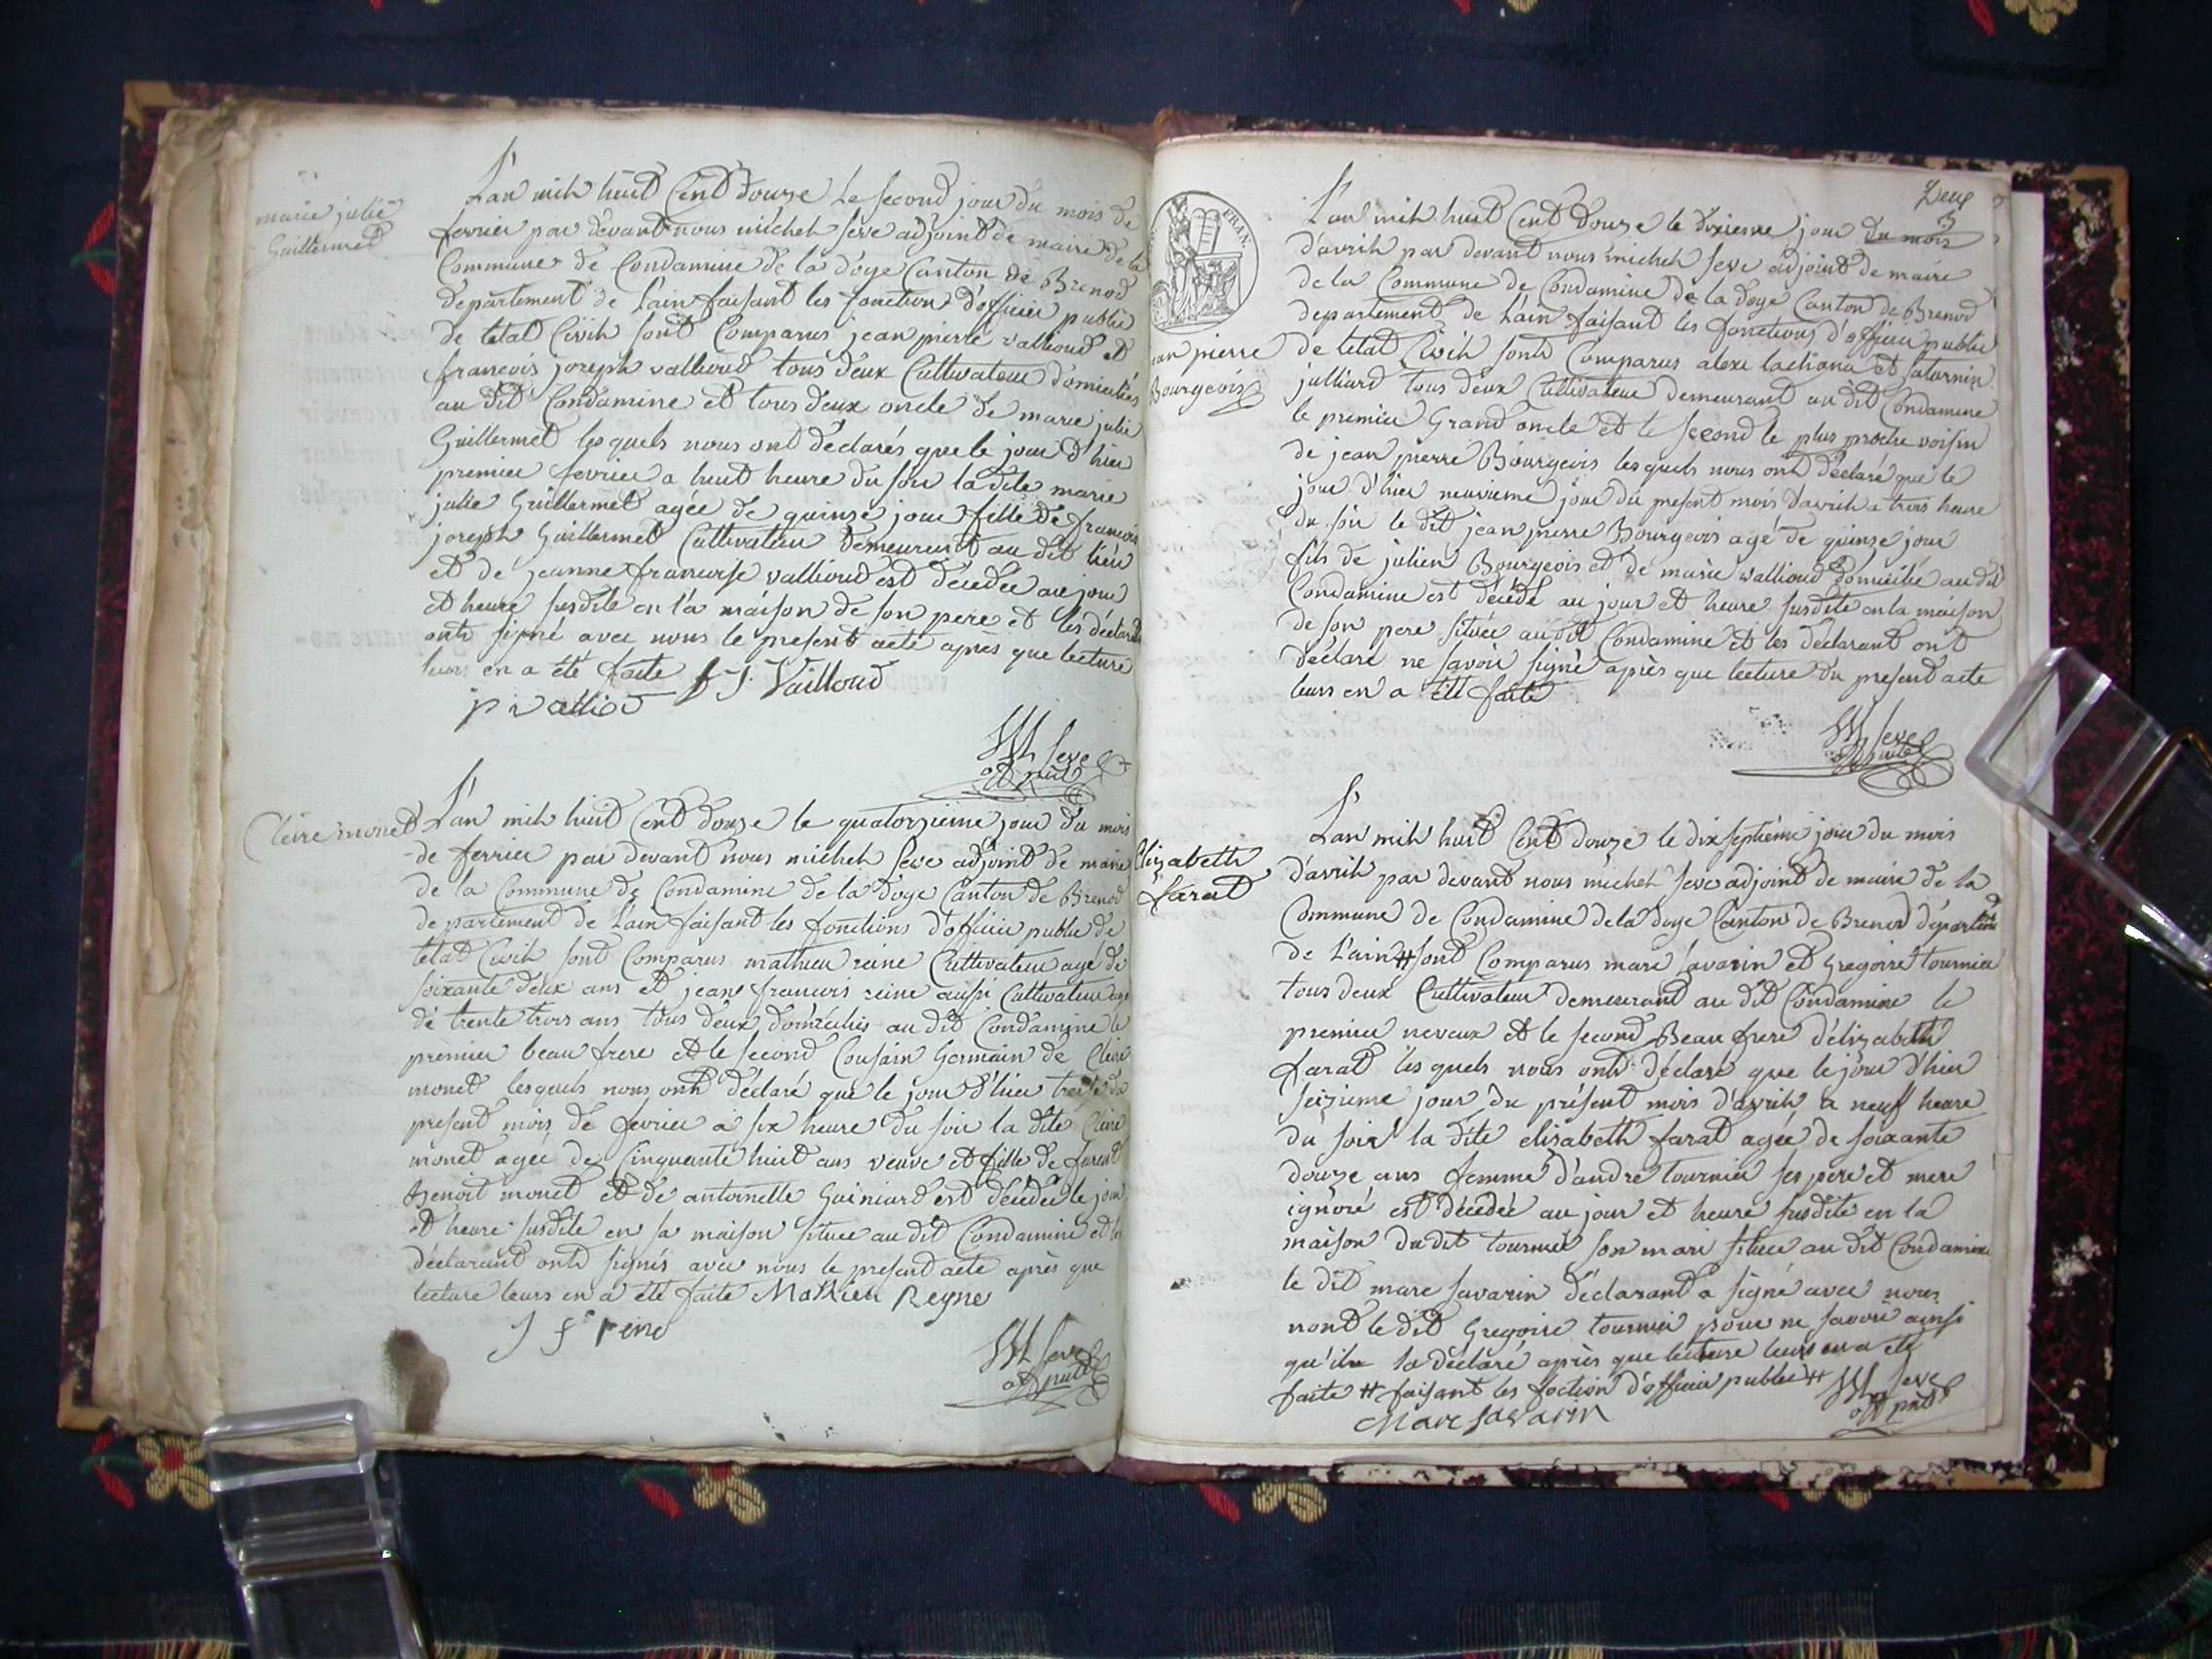 marie julie
Guillermet
L'an mil huit Cent douze Le second jour du mois de
fevrier par devant nous michel seve adjoint de maire de la
Commune de Condamine de la doye Canton de Brenod
departement de l'ain faisant les fonction d'officier public
de letat Civil sont Comparus jean pierre vallioud et
francois joseph vallioud tous deux Cultivateur domiciliés
au dit Condamine et tous deux oncle de marie julie
Guillermet lesquels nous ont déclarés que le jour d'hier
premier fevrier a huit heure du soir la dite marie
julie Guillermet agée de quinze jour fille de francois
joseph Guillermet Cultivateur demeurent au dit lieu
et de jeanne francoise vallioud est décédée au jour
et heure susdite en la maison de son pere et les déclarant
ont signé avec nous le present acte après que lecture
leurs en a été faite f J. Vailloud
p vallioud
M seve
adjoint
Claire monet
L'an mil huit Cent douze le quatorzieme jour du mois
de fevrier par devant nous michel seve adjoint de maire
de la Commune de Condamine de la doye Canton de Brenod
departement de L'ain faisant les fonctions d'officier public de
letat Civil sont Comparus mathieu reine Cultivateur agé de
soixante deux ans et jean francois reine aussi Cultivateur agé
de trente trois ans tous deux domicilies au dit Condamine le
premier beau frere et le second Cousin Germain de Claire
monet lesquels nous ont déclaré que le jour d'hier treize du
present mois de fevrier a six heure du soir la dite Claire
monet agée de Cinquante huit ans veuve et fille de
Benoit monet et de antoinette Guiniard est décédée le jour
et heure susdite en sa maison située au dit Condamine et les
déclarant ont signés avec nous le present acte après que
lecture leurs en a été faite Mathieu Reyne
J f reine
M seve
adjoint
Deux
FRAN.
jean pierre
Bourgeois
L'an mil huit Cent douze le dixieme jour du mois
d'avril par devant nous michel seve adjoint de maire
de la Commune de Condamine de la doye Canton de Brenod
departement de L'ain faisant les fonctions d'officier public
de letat Civil sont Comparus alexi lachana et saturnin
julliard tous deux Cultivateur demeurant au dit Condamine
le premier Grand oncle et le second le plus proche voisin
de jean pierre Bourgeois lesquels nous ont déclaré que le
jour d'hier neuvieme jour du present mois d'avril a trois heure
du soir le dit jean pierre Bourgeois agé de quinze jour
fils de julien Bourgeois et de marie vallioud domicilié au dit
Condamine est décédé au jour et heure susdite en la maison
de son pere située au dit Condamine et les déclarant ont
déclaré ne savoir signé après que lecture du present acte
leurs en a été faite
M seve
adjoint
Elizabeth
farat
L'an mil huit Cent douze le dix septième jour du mois
d'avril par devant nous michel seve adjoint de maire de la
Commune de Condamine de la doye Canton de Brenod département
de L'ain # sont Comparus marc savarin et Gregoire tournier
tous deux Cultivateur demeurant au dit Condamine le
premier neveux et le second Beau frere d'élizabeth
farat lesquels nous ont déclaré que le jour d'hier
seizieme jour du présent mois d'avril a neuf heure
du soir la dite elisabeth farat agée de soixante
douze ans femme d'andré tournier ses pere et mere
ignoré est décédée au jour et heure susdite en la
maison du dit tournier son mari située au dit Condamine
le dit marc savarin déclarant a signé avec nous
nont le dit Gregoire tournier pour ne savoir ainsi
qu'il la déclaré après que lecture leurs en a été
faite # faisant les foction d'officier public #
M seve
adjoint
Marc Savarin